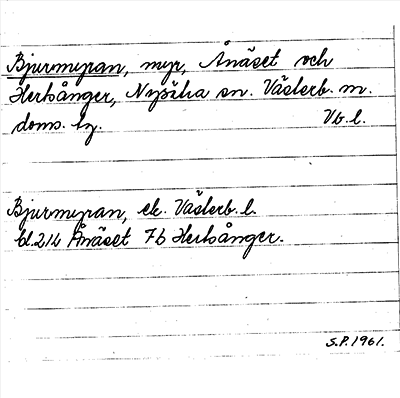 Bjurmyran, myr, Ånäset och
Herrsånger, Nysätra sn. Västerb. m.
doms. hg. Vb. l.
Bjurmyran, ek. Västerb. l.
bl. 214 Ånäset 7b Herrsånger.
S.P. 1961.